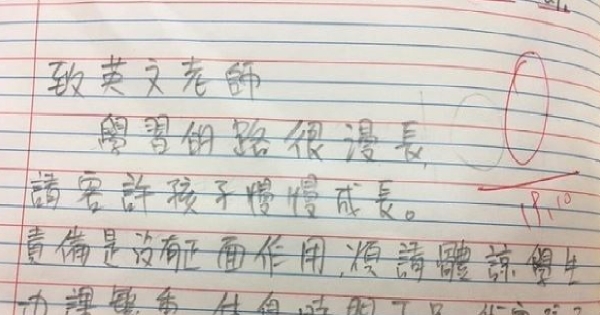 致英文老師
學習的路很漫長,
請容許孩子慢慢成長。
責備是沒有正面作用,煩請體諒學生
功課繁重